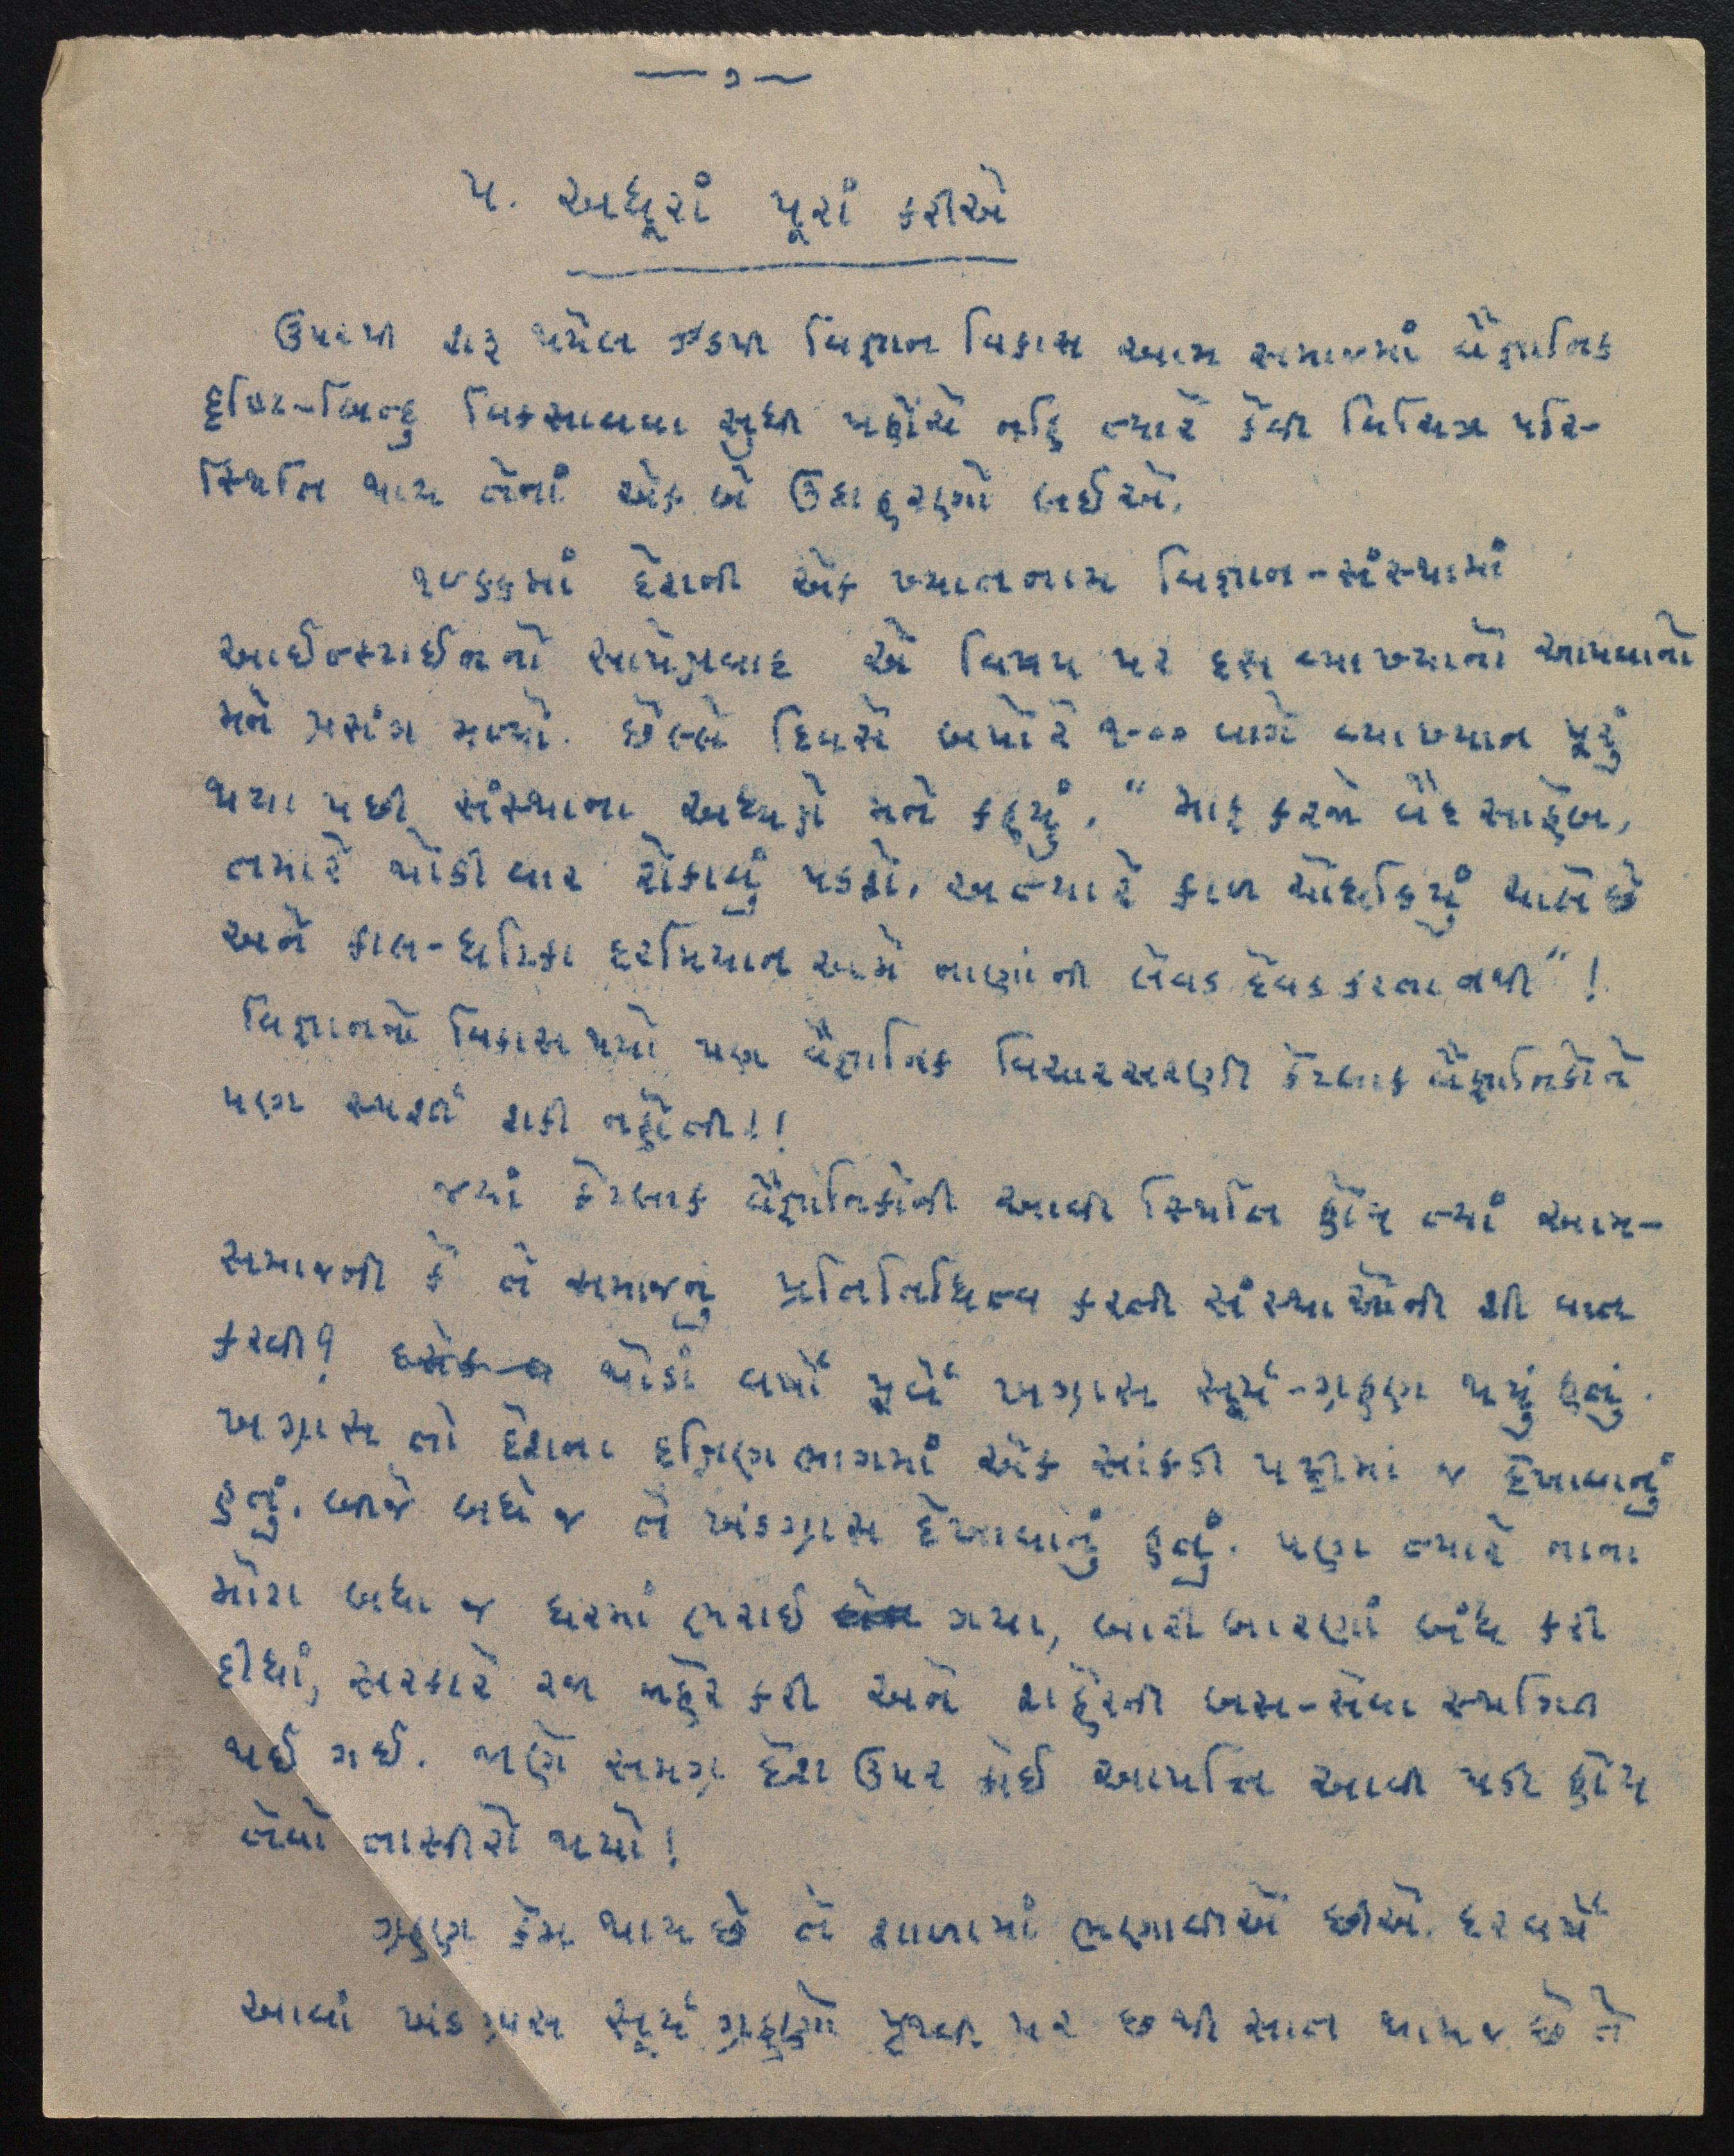 — ૭ —
૫. અધૂરાં પૂરાં કરીએ
ઉપરથી શરૂ થયેલ ઝડપી વિજ્ઞાન વિકાસ આમ સમાજમાં વૈજ્ઞાનિક
દૃષ્ટિ-બિન્દુ વિકસાવવા સુધી પહોંચે નહિ ત્યારે કેવી વિચિત્ર પરિ-
સ્થિતિ થાય તેનાં એક બે ઉદાહરણો લઈએ.
૧૯૬૬માં દેશની એક ખ્યાતનામ વિજ્ઞાન-સંસ્થામાં
આઈન્સ્ટાઈનનો સાપેક્ષવાદ એ વિષય પર દસ વ્યાખ્યાનો આપવાનો
મને પ્રસંગ મળ્યો. છેલ્લે દિવસે બપોરે ૧-૦૦ વાગે વ્યાખ્યાન પૂરું
થયા પછી સંસ્થાના અધ્યક્ષે મને કહ્યું, " માફ કરજો વૈદ્ય સાહેબ,
તમારે થોડી વાર રોકાવું પડશે. અત્યારે કાળ ચોઘડિયું ચાલે છે
અને કાલ-ઘટિકા દરમિયાન અમે નાણાંની લેવડ દેવડ કરતા નથી" !
વિજ્ઞાનનો વિકાસ થયો પણ વૈજ્ઞાનિક વિચારસરણી કેટલાક વૈજ્ઞાનિકોને
પણ સ્પર્શી શકી નહોતી!!
જ્યાં કેટલાક વૈજ્ઞાનિકોની આવી સ્થિતિ હોય ત્યાં આમ-
સમાજની કે તે સમાજનું પ્રતિનિધિત્વ કરતી સંસ્થાઓની શી વાત
કરવી? થોડાં વર્ષો પૂર્વે ખગ્રાસ સૂર્ય-ગ્રહણ થયું હતું.
ખગ્રાસ તો દેશના દક્ષિણ ભાગમાં એક સાંકડી પટ્ટીમાં જ દેખાવાનું
હતું. બીજે બધે જ તે ખંડગ્રાસ દેખાવાનું હતું. પણ ત્યારે નાના
મોટા બધા જ ઘરમાં ભરાઈ ગયા, બારી બારણાં બંધ કરી
દીધાં, સરકારે રજા જાહેર કરી અને શહેરની બસ-સેવા સ્થગિત
થઈ ગઈ. જાણે સમગ્ર દેશ ઉપર કોઈ આપત્તિ આવી પડી હોય
તેવો તાસીરો થયો!
ગ્રહણ કેમ થાય છે તે શાળામાં ભણાવીએ છીએ. દર વર્ષે
આવાં ખંડગ્રાસ સૂર્યગ્રહણો પૃથ્વી પર છ થી સાત થાય જ છે તે